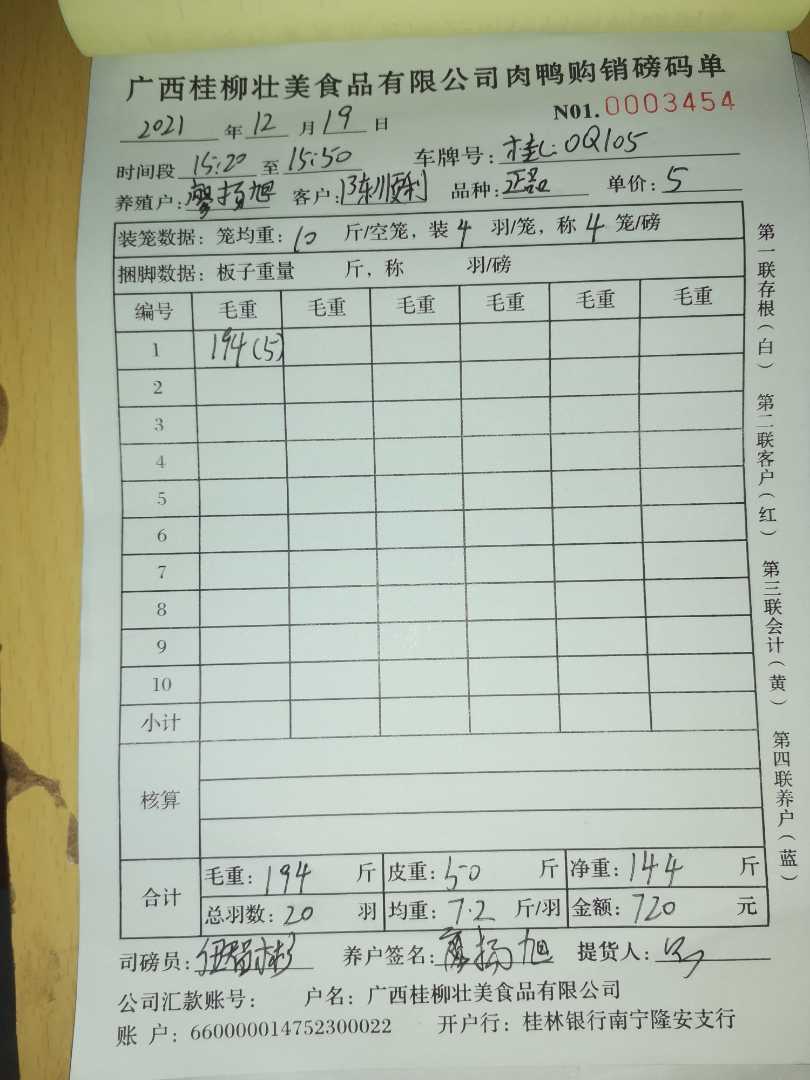 广西桂柳壮美食品有限公司肉鸭购销磅码单
2021 年 12 月 19 日 N01. 0003454
时间段 15:20 至 15:50 车牌号: 桂L·0Q105
养殖户: 廖扬旭 客户: 陈顺利 品种: 正品 单价: 5
装笼数据: 笼均重: 10 斤/空笼, 装 4 羽/笼, 称 4 笼/磅
捆脚数据: 板子重量 斤, 称 羽/磅
编号 毛重 毛重 毛重 毛重 毛重 毛重
1 194(5)
2
3
4
5
6
7
8
9
10
小计
核算
合计 毛重: 194 斤 皮重: 50 斤 净重: 144 斤
总羽数: 20 羽 均重: 7.2 斤/羽 金额: 720 元
司磅员: 养户签名: 廖扬旭 提货人:
公司汇款账号: 户名: 广西桂柳壮美食品有限公司
账 户: 660000014752300022 开户行: 桂林银行南宁隆安支行
第一联存根(白) 第二联客户(红) 第三联会计(黄) 第四联养户(蓝)